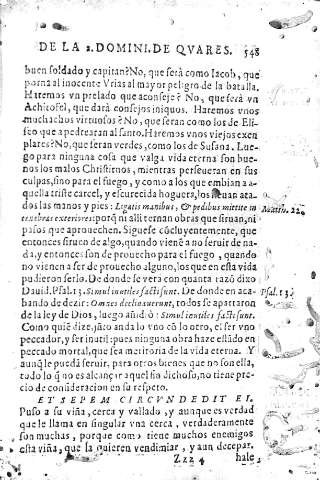 DE LA 2. DOMINI. DE QVARES. 548
buen soldado y capitan? No, que será como Iacob, que
porna al inocente Vrias al mayor peligro de la batalla.
Haremos vn prelado que aconseje? No, que será vn
Achitofel, que dará consejos iniquos. Haremos vnos
muchachos virtuosos? No, que seran como los de Eli-
seo que apedrearan al santo. Haremos vnos viejos exen
plares? No, que seran verdes, como los de Susana. Lue-
go para ninguna cosa que valga vida eterna son bue-
nos los malos Christianos, mientras perseueran en sus
culpas, sino para el fuego, y como a los que embian a a-
quella triste carcel, y escurecida hoguera, los lleuan ata-
dos las manos y pies: Ligatis manibus, & pedibus mittite in
tenebras exteriores: porq̃ ni alli ternan obras que siruan, ni
Matth. 22.
pasos que aprouechen. Siguese cõcluyentemente, que
entonces siruen de algo, quando vienẽ a no seruir de na-
da, y entonces son de prouecho para el fuego, quando
no vienen a ser de prouecho alguno, los que en esta vida
pudieron serlo. De donde se vera con quanta razõ dixo
Dauid. Psal. 13. Simul inutiles facti sunt. De donde en aca-
Psal. 13.
bando de dezir: Omnes declinauerunt, todos se apartaron
de la ley de Dios, luego añadio: Simul inutiles facti sunt.
Como quiẽ dize, jũto anda lo vno cõ lo otro, el ser vno
peccador, y ser inutil: pues ninguna obra haze el lado en
peccado mortal, que sea meritoria de la vida eterna. Y
aunq̃ le pueda seruir, para otros bienes que no son ella,
todo lo q̃ no es alcançar aquel fin dichoso, no tiene pre-
cio de consideracion en su respeto.
ET SEPEM CIRCVNDEDIT EI.
Puso a su viña, cerca y vallado, y aunque es verdad
que le llama en singular vna cerca, verdaderamente
son muchas, porque como tiene muchos enemigos
esta viña, que la quieren vendimiar, y aun decepar.
Zzz 4 hale